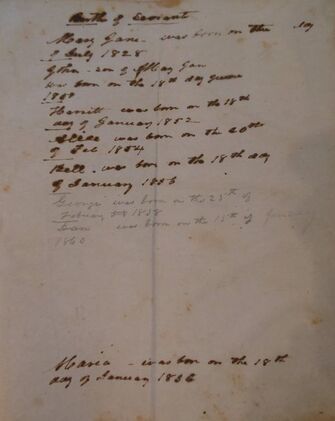 Birth of Servant
Mary Jane - was born on the day
of July 1828
John - son of Mary Jan
was born on the 18th day
1850
Harriett was born on the 18th
day of January 1852
was born on the 20th
of Feb 1854
Bell - was born on the 18th day
of January 1856
George was born on the 23th of
Febuary 1858
was born on the 15th of
1860
Maria - was born on the 18th
day of January 1836